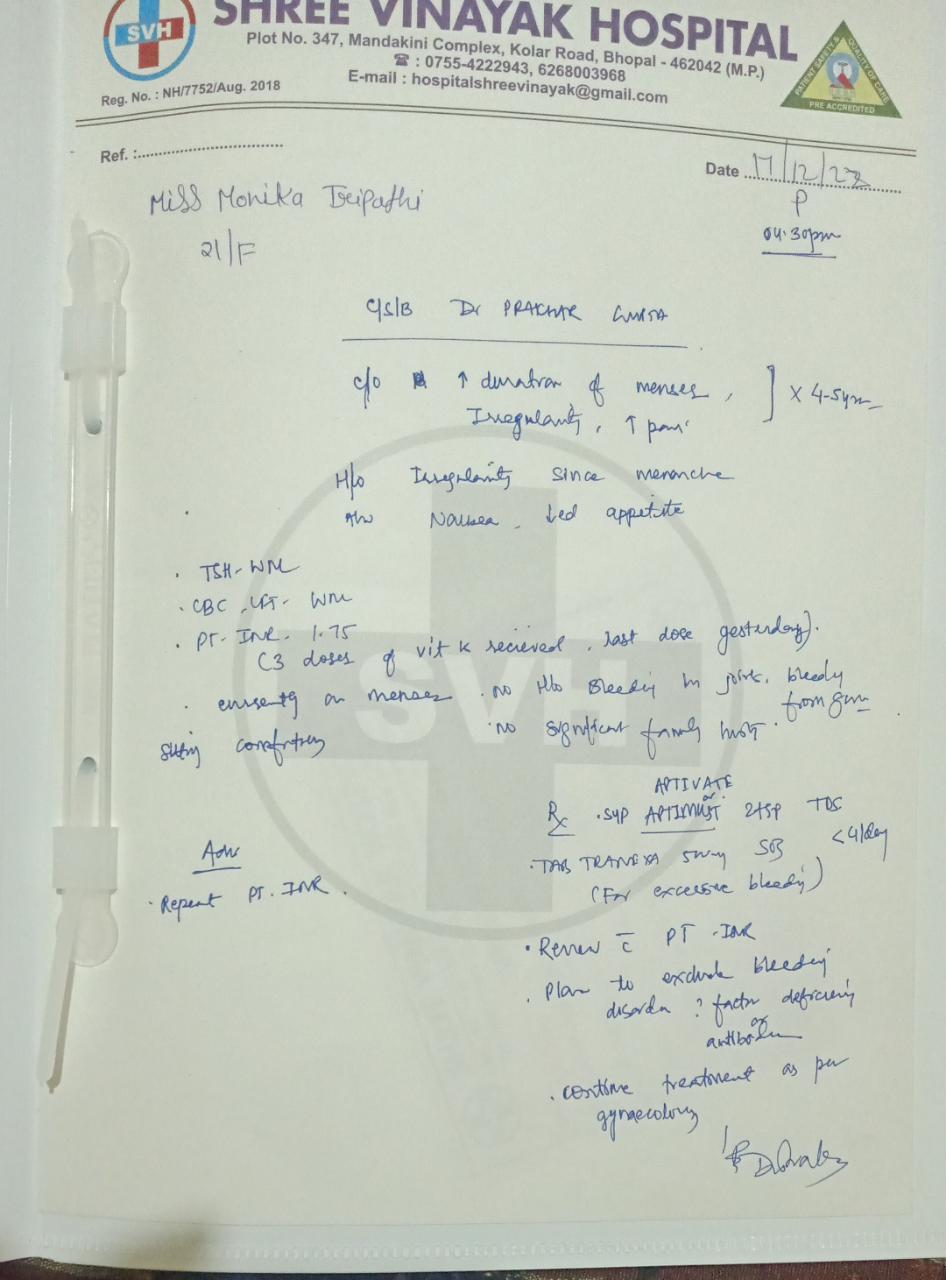 SHREE VINAYAK HOSPITAL
SVH
Plot No. 347, Mandakini Complex, Kolar Road, Bhopal - 462042 (M.P.)
☎ : 0755-4222943, 6268003968
E-mail : hospitalshreevinayak@gmail.com
Reg. No. : NH/7752/Aug. 2018
PATIENT SAFETY & QUALITY OF CARE
PRE ACCREDITED
Ref. :
Date 17/12/22
Miss Monika Tripathi
04:30pm
21/F
C/S/B Dr PRAKHAR GUPTA
c/o ↑ duration of menses,
Irregularity, ↑ pain
] x 4-5yrs
H/o Irregularity since menarche
A/w Nausea, ↓ed appetite
. TSH - WNL
. CBC, LFT - WNL
. PT-INR - 1.75
(3 doses of vit K recieved, last dose yesterday).
. currently on menses . no H/o Bleeding in joints, bleeding
from gum
sitting comfortably . no significant family history.
APTIVATE
or
Rx . syp APTIMUST 2tsp TDS
. TAB TRANEXA SOS <4/day
(For excessive bleeding)
Adv
. Repeat PT-INR.
. Review c̄ PT-INR
. Plan to exclude bleeding
disorder ? factor deficiency
or
antibodies
. continue treatment as per
gynaecology
SVH